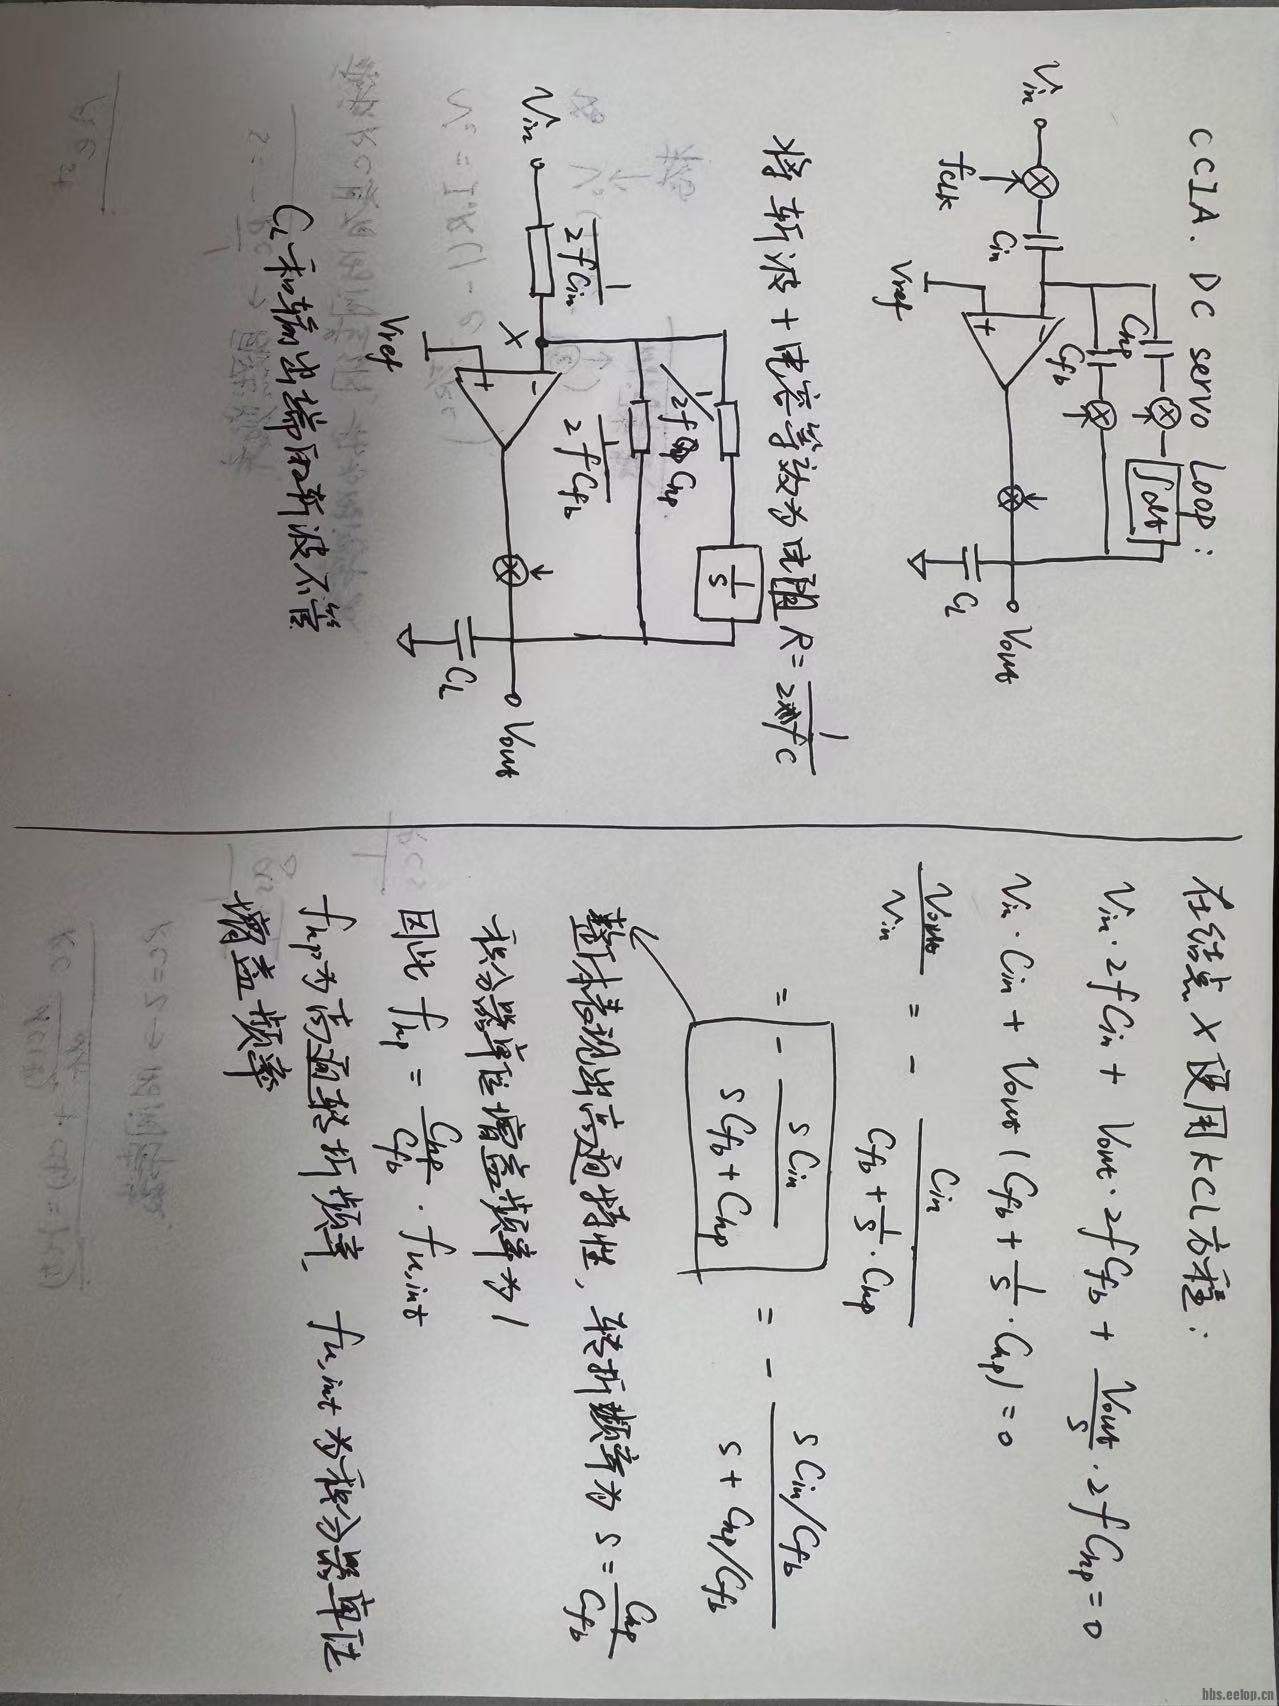 CCIA. DC servo Loop:
Vin
fclk
Cin
Vref
Chp
Cfb
∫dt
CL
Vout
将斩波+电容等效为电阻R=1/2fC
Vin
1/2fCin
X
Vref
1/2fChp
1/2fCfb
1/s
CL
Vout
CL和输出端用斩波不管
在结点X使用KCL方程:
Vin·2fCin + Vout·2fCfb + Vout/s·2fChp = 0
Vin·Cin + Vout(Cfb + 1/s·Chp) = 0
Vout/Vin = - Cin/(Cfb + 1/s·Chp)
= - sCin/(sCfb + Chp) = - (sCin/Cfb)/(s + Chp/Cfb)
整体表现出高通特性,转折频率为 s = Chp/Cfb
积分器单位增益频率为1
因此 fhp = Chp/Cfb · fu,int
fhp为高通转折频率, fu,int为积分器单位
增益频率
bbs.eetop.cn